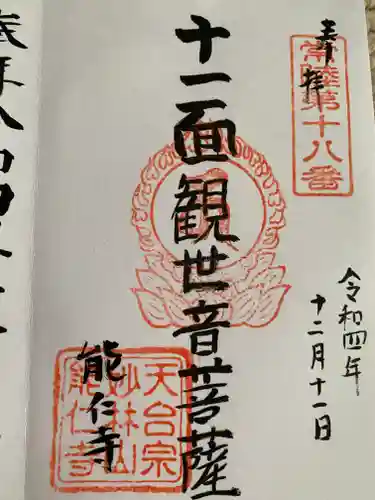 奉拝
常陸第十八番
令和四年
十二月十一日
十一面観世音菩薩
能仁寺
天台宗
妙林山
能仁寺